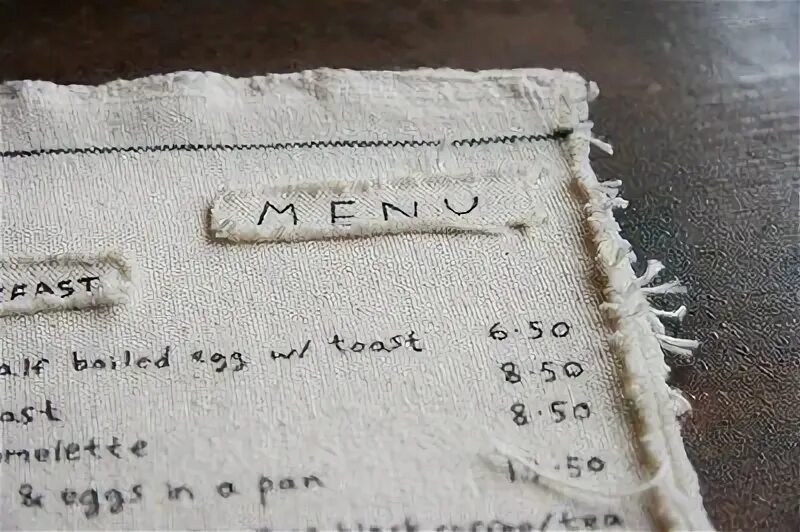 MENU
FAST
alf boiled egg w/ toast 6.50
ast 8.50
melette 8.50
& eggs in a pan .50